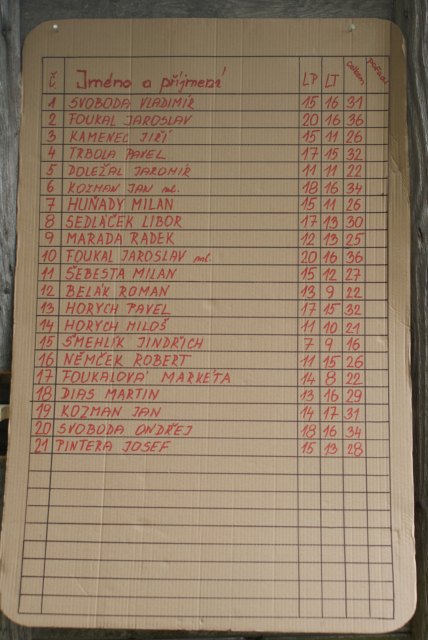 Č. Jméno a příjmení LP LT celkem pořadí
1 SVOBODA VLADIMÍR 15 16 31
2 FOUKAL JAROSLAV 20 16 36
3 KAMENEC JIŘÍ 15 11 26
4 TRBOLA PAVEL 17 15 32
5 DOLEŽAL JAROMÍR 11 11 22
6 KOZMAN JAN ml. 18 16 34
7 HUŇADY MILAN 15 11 26
8 SEDLÁČEK LIBOR 17 13 30
9 MARADA RADEK 12 13 25
10 FOUKAL JAROSLAV ml. 20 16 36
11 ŠEBESTA MILAN 15 12 27
12 BELÁK ROMAN 13 9 22
13 HORYCH PAVEL 17 15 32
14 HORYCH MILOŠ 11 10 21
15 SMEHLÍK JINDŘICH 7 9 16
16 NĚMČEK ROBERT 11 15 26
17 FOUKALOVÁ MARKÉTA 14 8 22
18 DIAS MARTIN 13 16 29
19 KOZMAN JAN 14 17 31
20 SVOBODA ONDŘEJ 18 16 34
21 PINTERA JOSEF 15 13 28